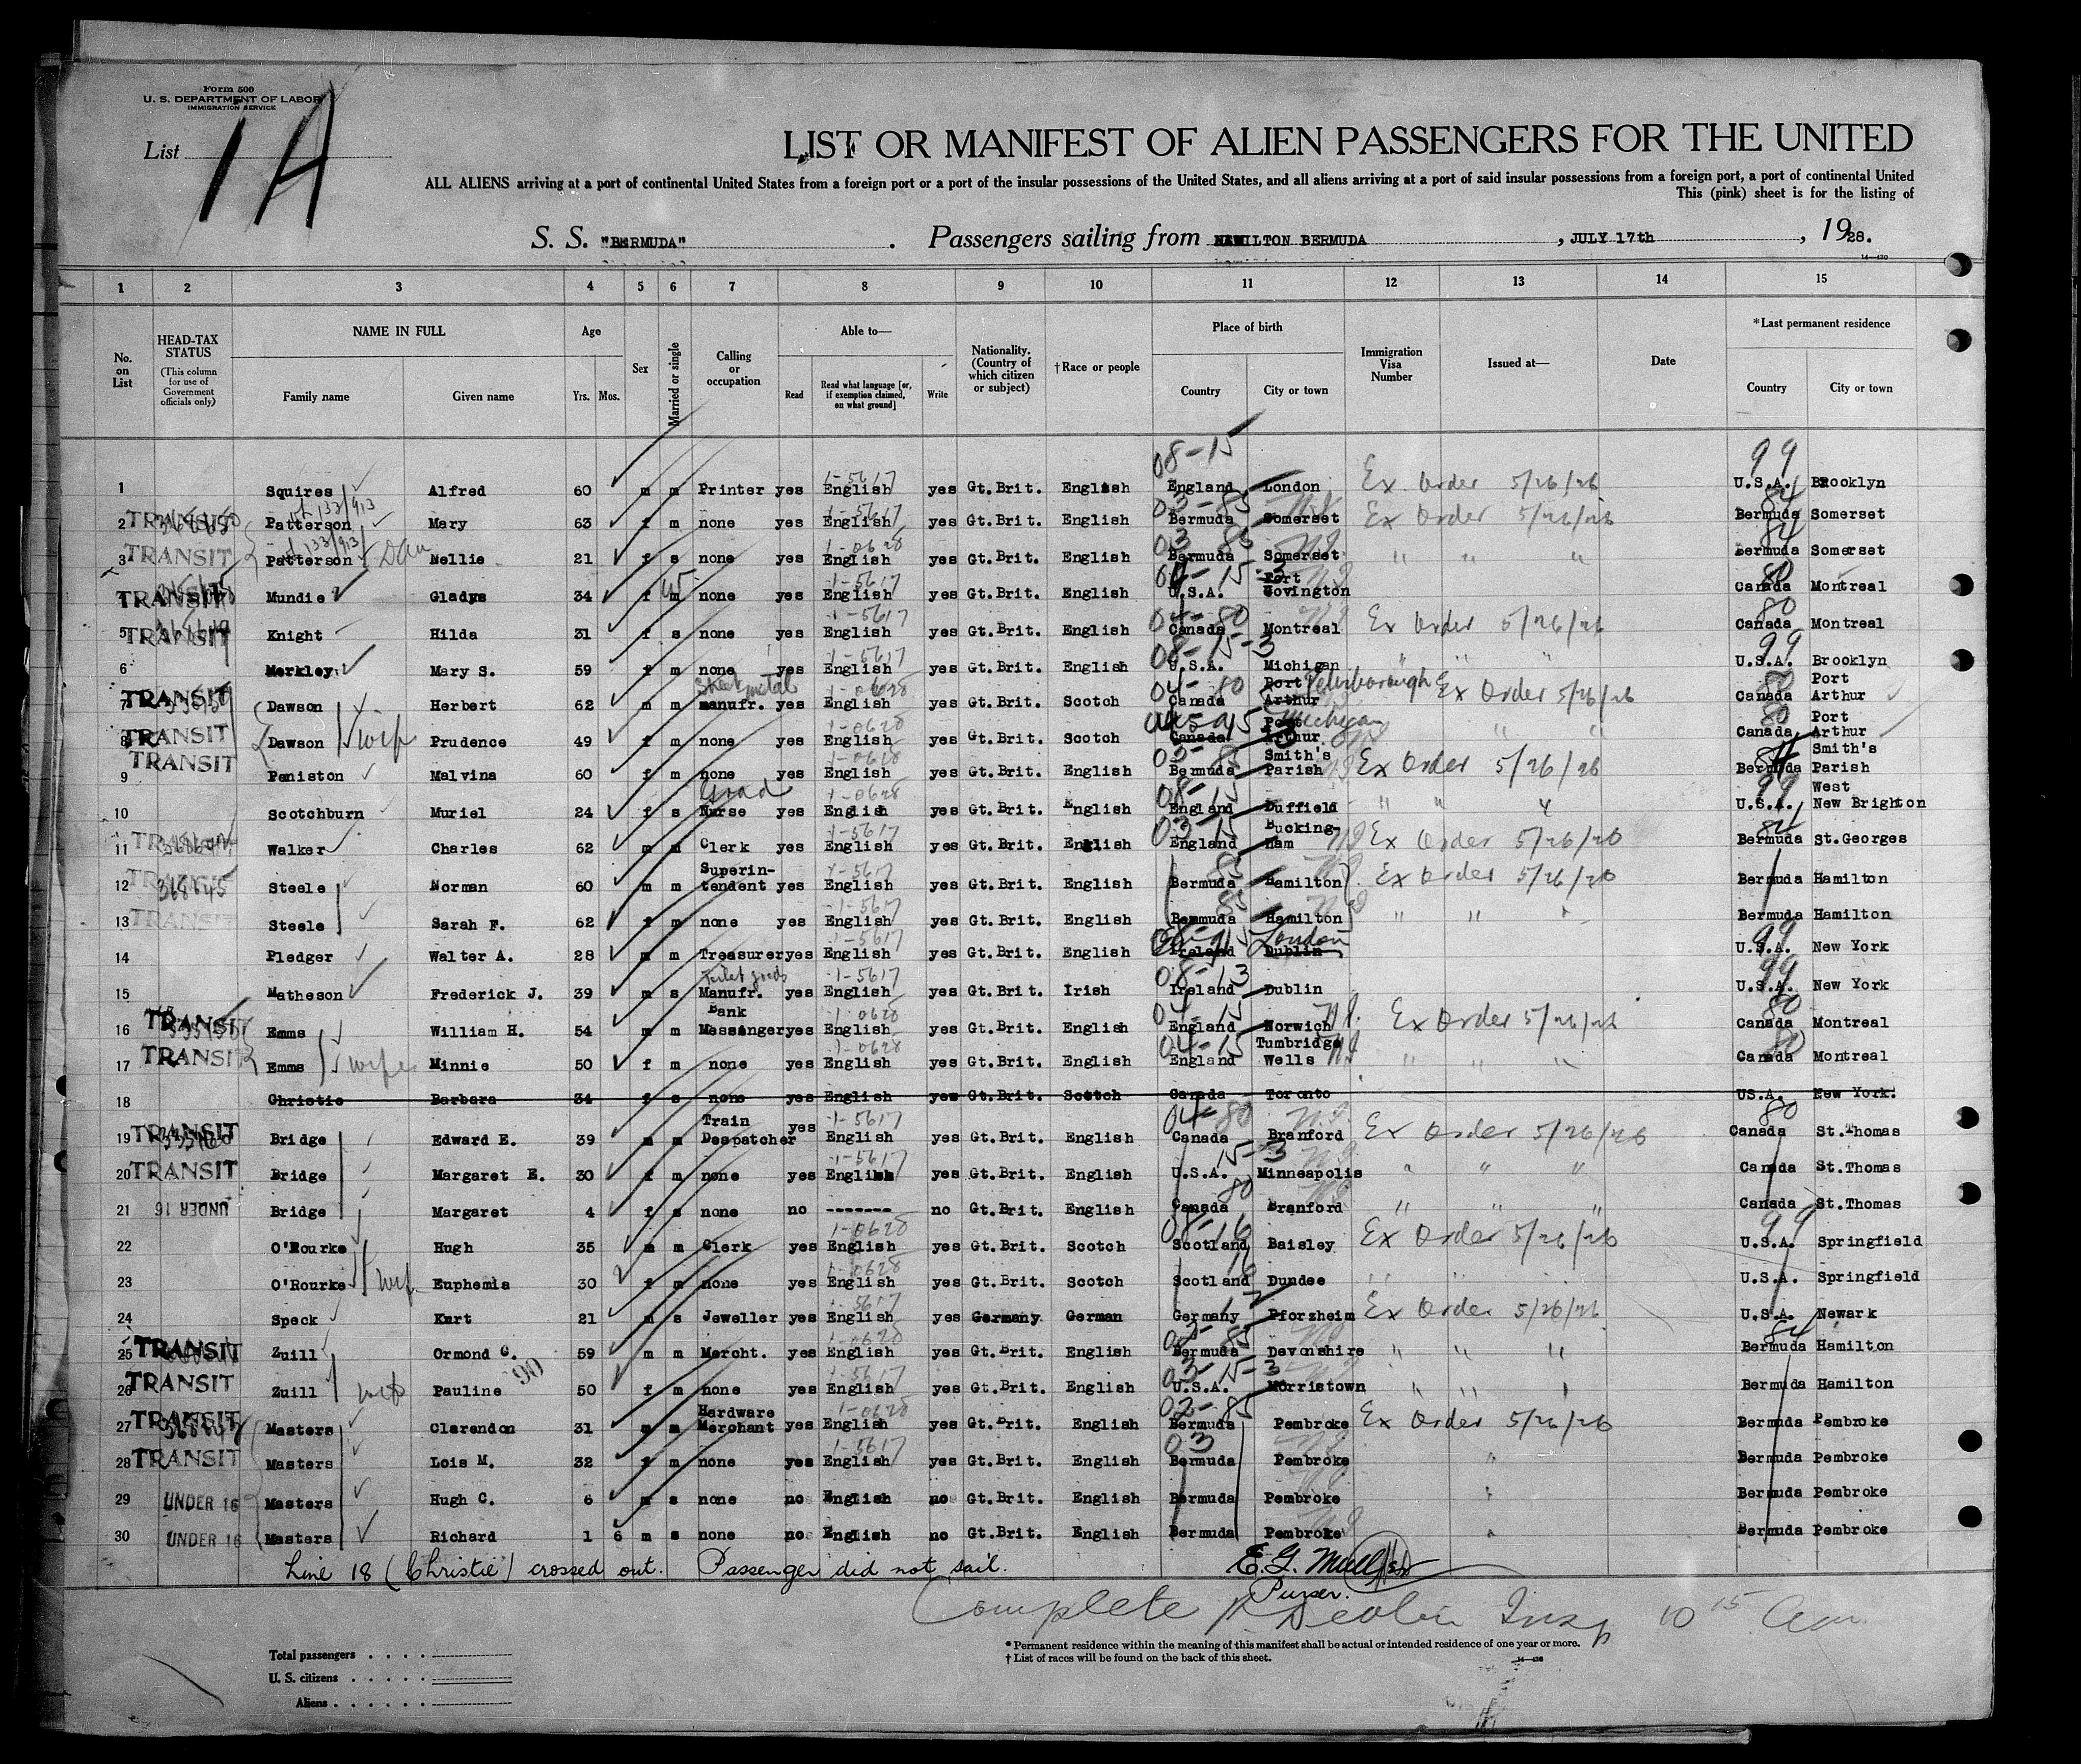 Form 500
U. S. DEPARTMENT OF LABOR
IMMIGRATION SERVICE
List 1A
LIST OR MANIFEST OF ALIEN PASSENGERS FOR THE UNITED
ALL ALIENS arriving at a port of continental United States from a foreign port or a port of the insular possessions of the United States, and all aliens arriving at a port of said insular possessions from a foreign port, a port of continental United
This (pink) sheet is for the listing of
S. S. "BERMUDA". Passengers sailing from HAMILTON BERMUDA, JULY 17th, 1928.
1 2 3 4 5 6 7 8 9 10 11 12 13 14 15
No. on List
HEAD-TAX STATUS (This column for use of Government officials only)
NAME IN FULL Family name Given name
Age Yrs. Mos.
Sex
Married or single
Calling or occupation
Able to— Read Read what language [or, if exemption claimed, on what ground] Write
Nationality. (Country of which citizen or subject)
†Race or people
Place of birth Country City or town
Immigration Visa Number
Issued at—
Date
*Last permanent residence Country City or town
1 Squires Alfred 60 m m Printer yes 1-5617 English yes Gt.Brit. English 08-15 England London Ex Order 5/26/26 99 U.S.A. Brooklyn
2 TRANSIT Patterson Mary 63 f m none yes 1-5617 English yes Gt.Brit. English 03-85 Bermuda Somerset Ex Order 5/26/26 84 Bermuda Somerset
3 TRANSIT Patterson Dau Nellie 21 f s none yes 1-0628 English yes Gt.Brit. English 03 85 Bermuda Somerset " " " 84 Bermuda Somerset
TRANSIT Mundie Gladys 34 f m none yes 1-5617 English yes Gt.Brit. English 04-15-3 U.S.A. Port Covington 80 Canada Montreal
5 TRANSIT Knight Hilda 31 f s none yes 1-5617 English yes Gt.Brit. English 04-80 Canada Montreal Ex Order 5/26/26 80 Canada Montreal
6 Merkley Mary S. 59 f m none yes 1-5617 English yes Gt.Brit. English 08-15-3 U.S.A. Michigan " " " 99 U.S.A. Brooklyn
7 TRANSIT Dawson Herbert 62 m m Sheet metal manufr. yes 1-0628 English yes Gt.Brit. Scotch 04-80 Canada Port Arthur Peterborough Ex Order 5/26/26 80 Canada Port Arthur
8 TRANSIT Dawson wife Prudence 49 f m none yes 1-0628 English yes Gt.Brit. Scotch Canada Port Arthur Michigan " " 80 Canada Port Arthur
9 TRANSIT Peniston Malvina 60 f m none yes 1-0628 English yes Gt.Brit. English 03-85 Bermuda Smith's Parish Ex Order 5/26/26 84 Bermuda Smith's Parish
10 Scotchburn Muriel 24 f s Grad Nurse yes 1-0628 English yes Gt.Brit. English 08-15 England Duffield " " " 99 U.S.A. West New Brighton
11 Walker Charles 62 m m Clerk yes 1-5617 English yes Gt.Brit. English 03-15 England Bucking-ham Ex Order 5/26/26 84 Bermuda St.Georges
12 TRANSIT 368845 Steele Norman 60 m m Superin-tendent yes 1-5617 English yes Gt.Brit. English 85 Bermuda Hamilton Ex Order 5/26/26 Bermuda Hamilton
13 TRANSIT Steele Sarah F. 62 f m none yes 1-5617 English yes Gt.Brit. English 85 Bermuda Hamilton " " " Bermuda Hamilton
14 Pledger Walter A. 28 m m Treasurer yes 1-5617 English yes Gt.Brit. English Ireland Dublin London 99 U.S.A. New York
15 Matheson Frederick J. 39 m s Toilet goods Manufr. yes 1-5617 English yes Gt.Brit. Irish 08-13 Ireland Dublin 99 U.S.A. New York
16 TRANSIT Emms William H. 54 m m Bank Messenger yes 1-0628 English yes Gt.Brit. English 04-15 England Norwich Ex Order 5/26/26 80 Canada Montreal
17 TRANSIT Emms wife Minnie 50 f m none yes 1-0628 English yes Gt.Brit. English 04-15 England Tumbridge Wells " " " 80 Canada Montreal
18 Christie Barbara 34 f s none yes English yes Gt.Brit. Scotch Canada Toronto US.A. New York.
19 TRANSIT Bridge Edward E. 39 m m Train Despatcher yes 1-5617 English yes Gt.Brit. English 04-80 Canada Branford Ex Order 5/26/26 80 Canada St.Thomas
20 TRANSIT Bridge Margaret E. 30 f m none yes 1-5617 English yes Gt.Brit. English 15-3 U.S.A. Minneapolis " " " Canada St.Thomas
21 UNDER 16 Bridge Margaret 4 f s none no ------- no Gt.Brit. English 80 Canada Branford " " " Canada St.Thomas
22 O'Rourke Hugh 35 m m Clerk yes 1-0628 English yes Gt.Brit. Scotch 08-16 Scotland Baisley Ex Order 5/26/26 99 U.S.A. Springfield
23 O'Rourke wif Euphemia 30 f m none yes 1-0628 English yes Gt.Brit. Scotch 16 Scotland Dundee " " U.S.A. Springfield
24 Speck Kurt 21 m s Jeweller yes 5617 English yes Germany German 12 Germany Pforzheim Ex Order 5/26/26 U.S.A. Newark
25 TRANSIT Zuill Ormond C. 59 m m Mercht. yes 1-0628 English yes Gt.Brit. English 03-85 Bermuda Devonshire " " " 84 Bermuda Hamilton
26 TRANSIT Zuill wife Pauline 90 50 f m none yes 5617 English yes Gt.Brit. English 03-15-3 U.S.A. Morristown " " " Bermuda Hamilton
27 TRANSIT Masters Clarendon 31 m m Hardware Merchant yes 1-0628 English yes Gt.Brit. English 03-85 Bermuda Pembroke Ex Order 5/26/26 Bermuda Pembroke
28 TRANSIT Masters Lois M. 32 f m none yes 1-5617 English yes Gt.Brit. English 03 Bermuda Pembroke " Bermuda Pembroke
29 UNDER 16 Masters Hugh C. 6 m s none no English no Gt.Brit. English Bermuda Pembroke " Bermuda Pembroke
30 UNDER 16 Masters Richard 1 6 m s none no English no Gt.Brit. English Bermuda Pembroke " Bermuda Pembroke
Line 18 (Christie) crossed out. Passenger did not sail. E. G.
Purser.
Complete Insp 10 15 am
Total passengers . . . .
U. S. citizens . . . . .
Aliens . . . . . .
* Permanent residence within the meaning of this manifest shall be actual or intended residence of one year or more.
† List of races will be found on the back of this sheet.